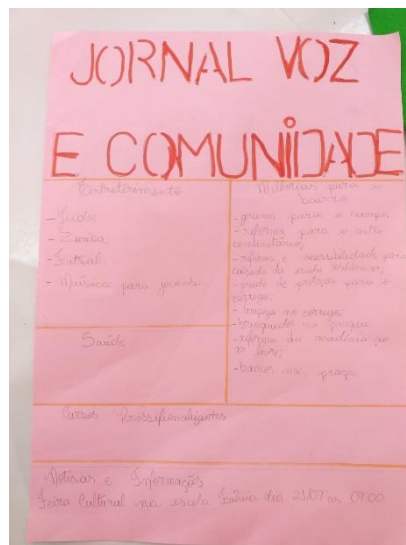 JORNAL VOZ
E COMUNIDADE
Entreterimento
- Judô
- Zumba
- Futsal
- Música para jovens
Saúde
Melhorias para o
bairro
- grama para o campo
- reforma para o
comunitário;
- reforma e acessibilidade para
calçada da escola
- grade de proteção para o
córrego;
- limpeza no córrego;
- brinquedos no parque
- reforma da academia ao
ar livre;
- bancos na praça
Cursos Profissionalizantes
Notícias e Informações
Feira Cultural na escola dia 23/09 as 09:00